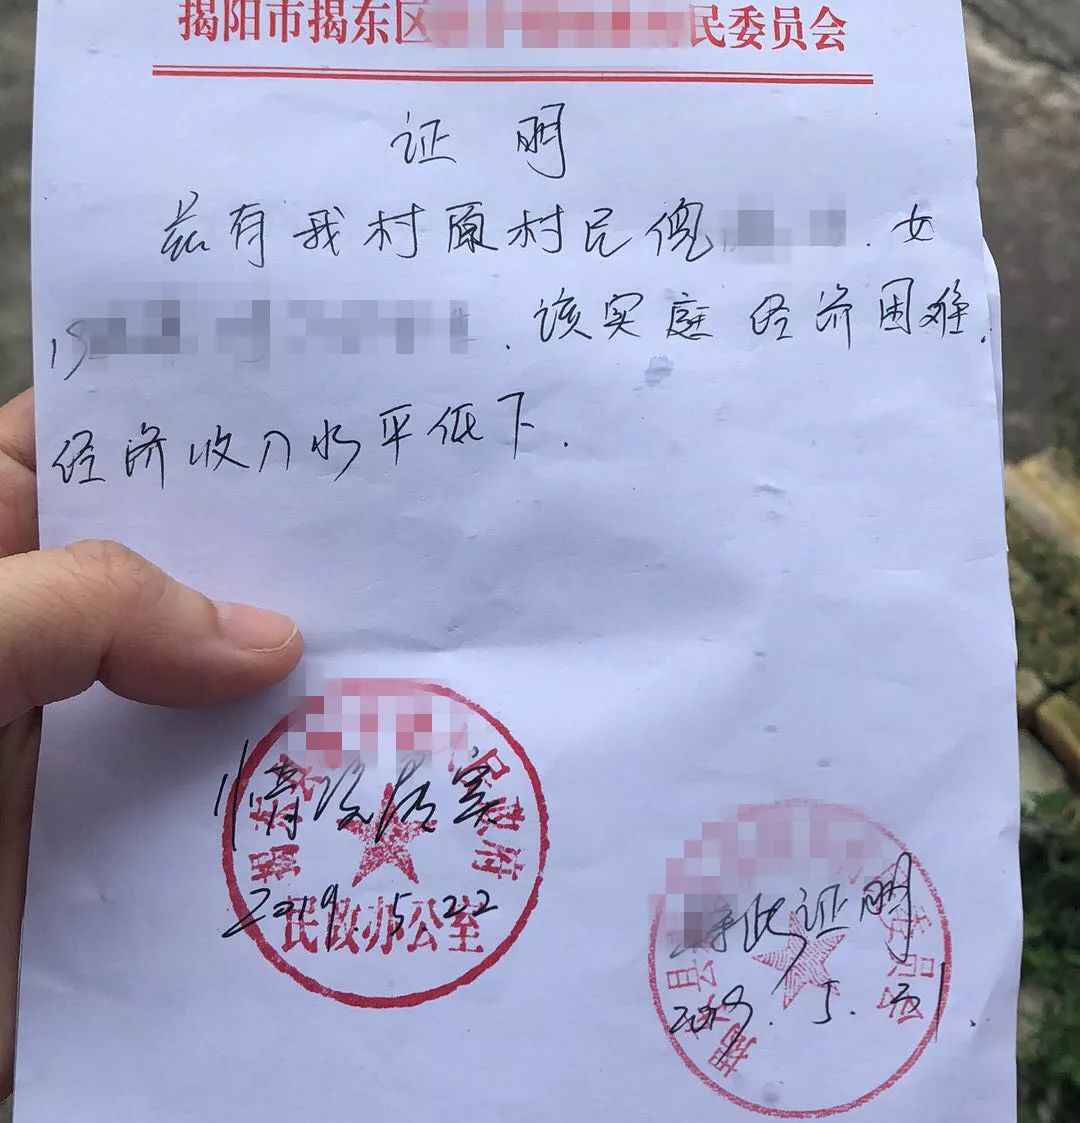 揭阳市揭东区 民委员会
证明
兹有我村原村民 女
该实庭经济困难.
经济收入水平低下.
情况属实
2019.5.22
民政办公室
特此证明